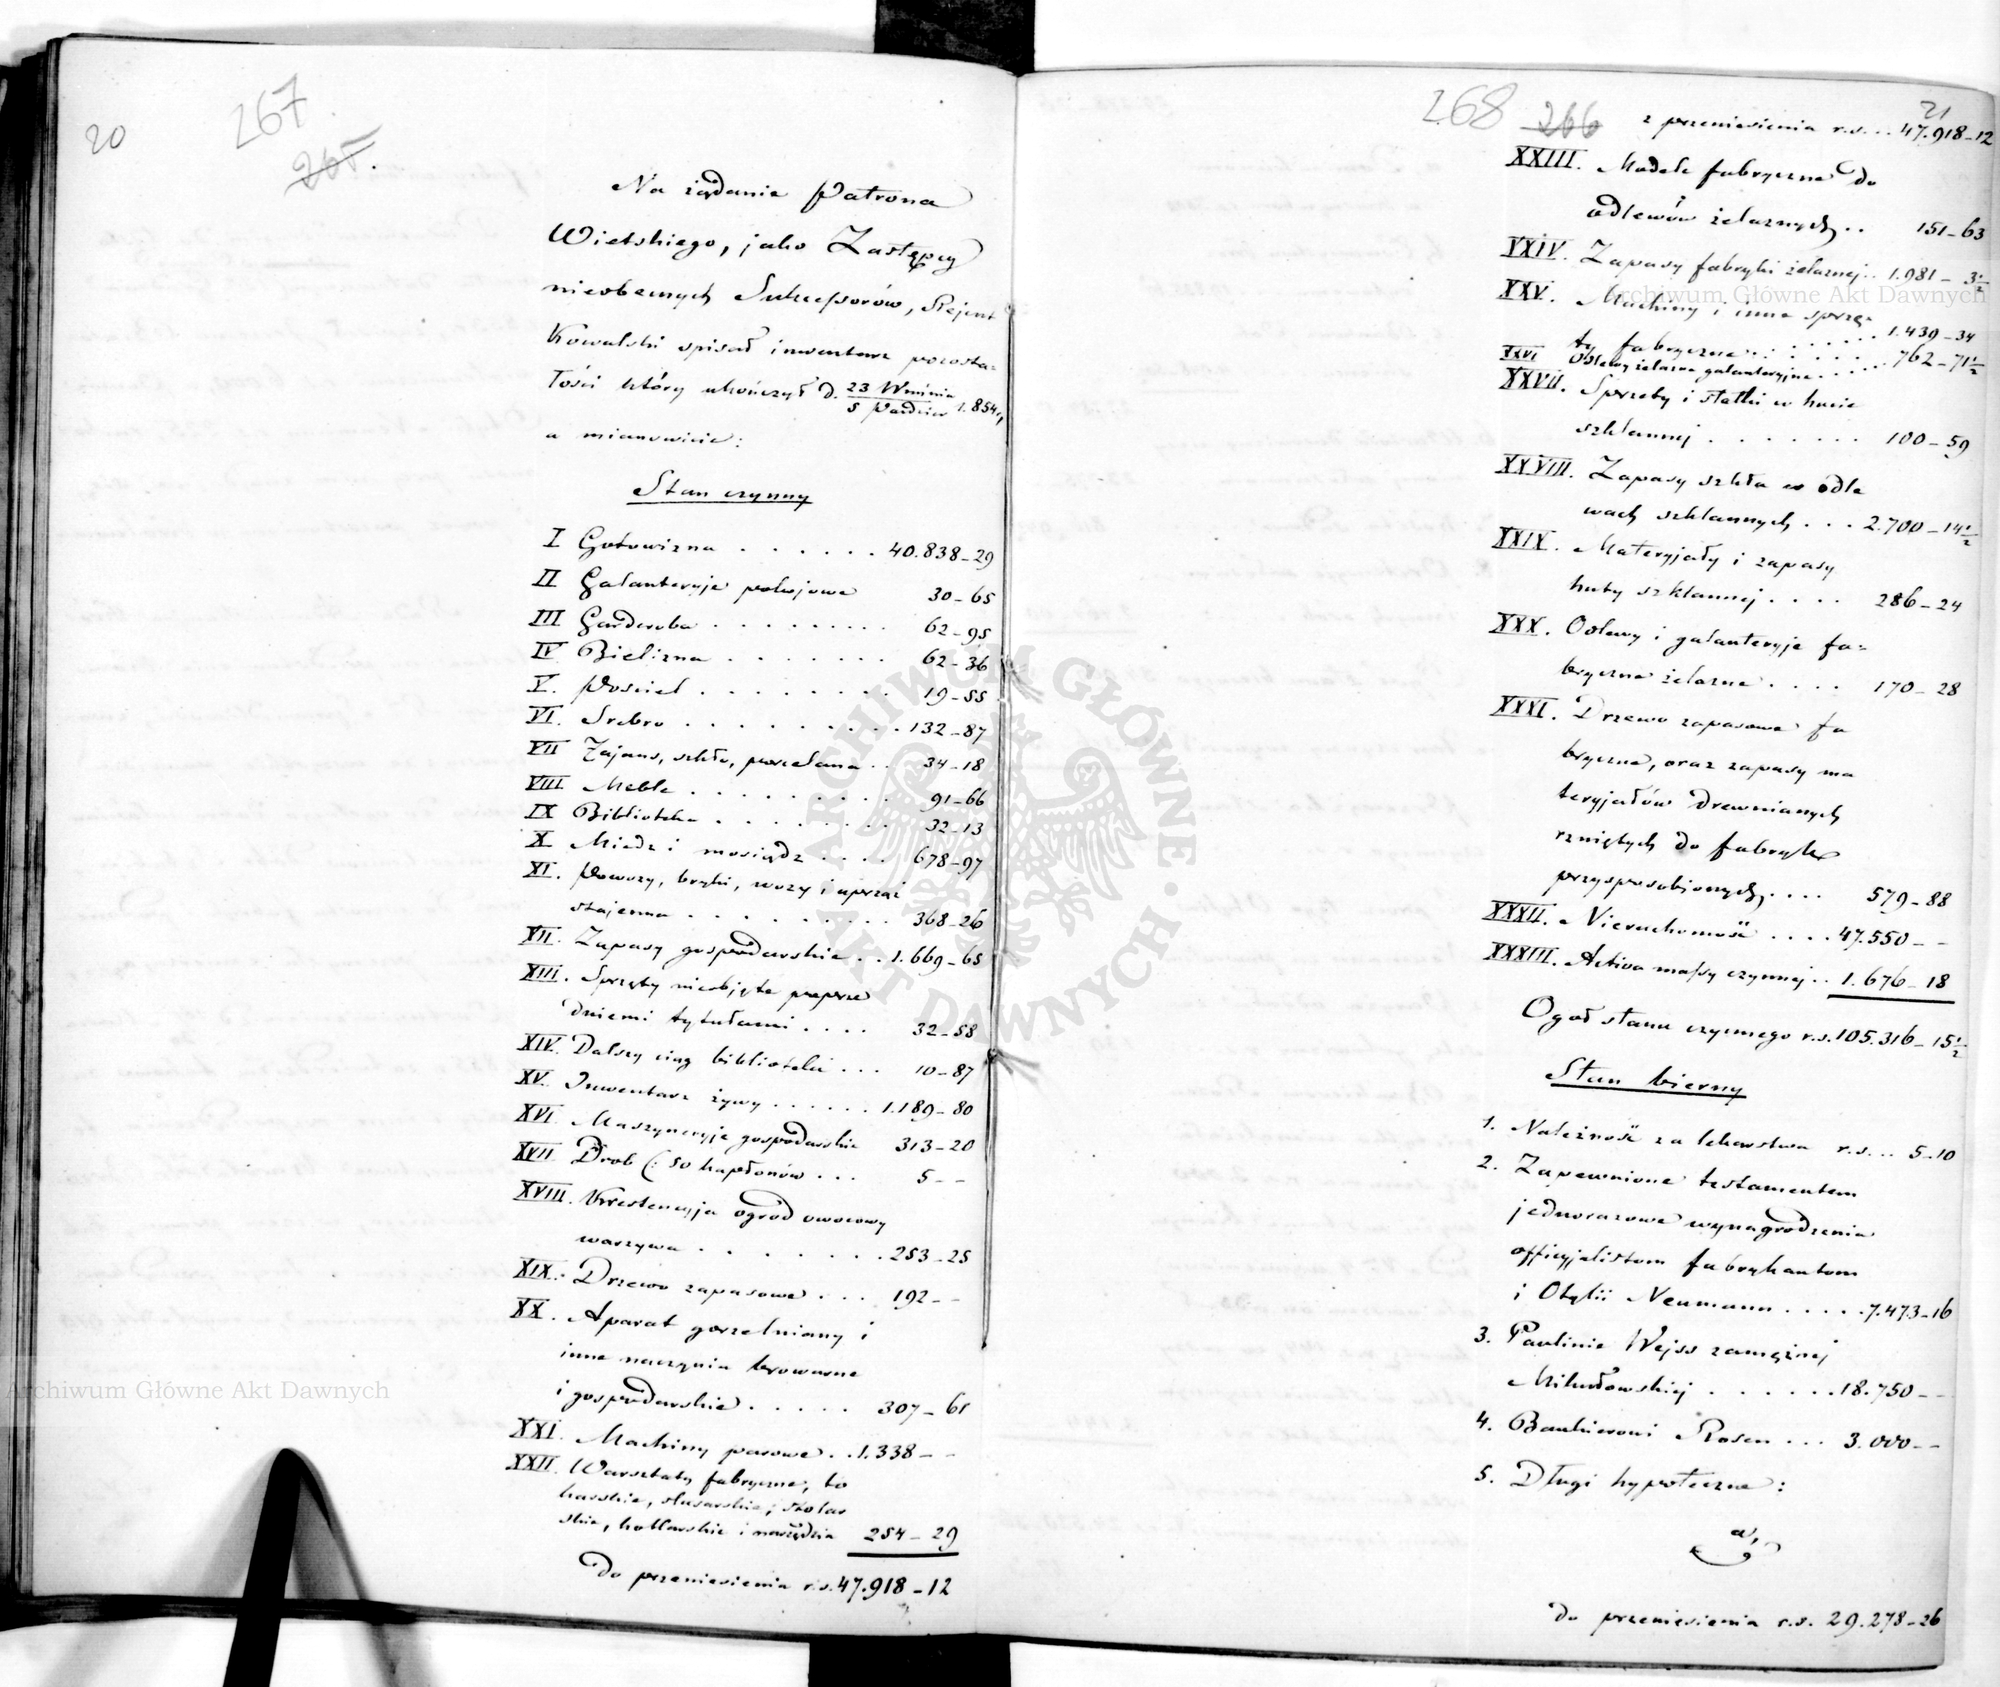 20
267
265.
Na żądanie Patrona
Wietskiego, jako Zastępcy
nieobecnych Sukcessorów, Rejent
Kowalski spisał inwentarz pozosta=
łości który ukończył d. 23 Wrześnie / 5 Paździer 1.854 r,
a mianowicie:
Stan czynny
I Gotowizna . . . . . . 40.838-29
II Galanteryje pokojowe 30-65
III Garderoba . . . . . . . . . 62-95
IV Bielizna . . . . . . . . 62-36
V. Pościel . . . . . . . . . 19-55
VI. Srebro . . . . . . . . . 132-87
VII Fajans, szkło, porcelana . . 34-18
VIII Meble . . . . . . . . . 91-66
IX Biblioteka . . . . . . . . 32-13
X Miedź i mosiądz . . . . 678-97
XI. Powozy, bryki, wozy i uprząż
stajenna . . . . . . . . . 368-26
XII. Zapasy gospodarskie . . 1.669-65
XIII. Sprzęty nieobjęte poprze
dniemi tytułami . . . . 32-58
XIV. Dalszy ciąg biblioteki . . . 10-87
XV. Inwentarz żywy . . . . . . 1.189-80
XVI. Maszyneryje gospodarskie 313-20
XVII Drob (: 50 kapłonów . . . 5 - -
XVIII. Krestencyja ogrod owocowy
warzywa . . . . . . . 253-25
XIX. Drzewo zapasowe . . . 192 - -
XX. Aparat gorzelniany i
inne naczynia browarne
i gospodarskie . . . . . 307-61
XXI. Machiny parowe . . 1.338 - -
XXII. Warsztaty fabryczne, to
karskie, slusarskie, stolar
skie, kotlarskie i narzędzia 254-29
Do przeniesienia r.s. 47.918-12
268 266
21
z przeniesienia r.s. . . 47.918-12
XXIII. Modele fabryczne do
odlewów żelaznych . . 151-63
XXIV. Zapasy fabryki żelaznej . . 1.981-3½
XXV. Machiny i inne sprzę-
ty fabryczne . . . . . . . 1.439-34
XXVI Odlewy żelazne galanteryjne . . . . . 762-71½
XXVII. Sprzęty i statki w hucie
szklannej . . . . . . . 100-59
XXVIII. Zapasy szkła w odle
wach szklannych . . . 2.700-14½
XXIX. Materyjały i zapasy
huty szklannej . . . . 286-24
XXX. Odlewy i galanteryje fa=
bryczne żelazne . . . . 170-28
XXXI. Drzewo zapasowe fa
bryczne, oraz zapasy ma
teryjałów drewnianych
rzniętych do fabryk
przysposobionych . . . . 579-88
XXXII. Nieruchomość . . . . 47.550 - -
XXXIII. Activa massy czynnej . . 1.676-18
Ogoł stanu czynnego r.s. 105.316-15½
Stan bierny
1. Należność za lekarstwa r.s. . . 5-10
2. Zapewnione testamentem
jednorazowe wynagrodzenia
officyjalistom fabrykantom
i Otylii Neumann . . . . . 7.473-16
3. Paulinie Wejss zamężnej
Mikułowskiej . . . . . . 18.750 - -
4. Bankierowi Rosen . . . 3.000 - -
5. Długi hypoteczne:
a,
Do przeniesienia r.s. 29.278-26
Archiwum Główne Akt Dawnych
Archiwum Główne Akt Dawnych
ARCHIWUM GŁÓWNE AKT DAWNYCH